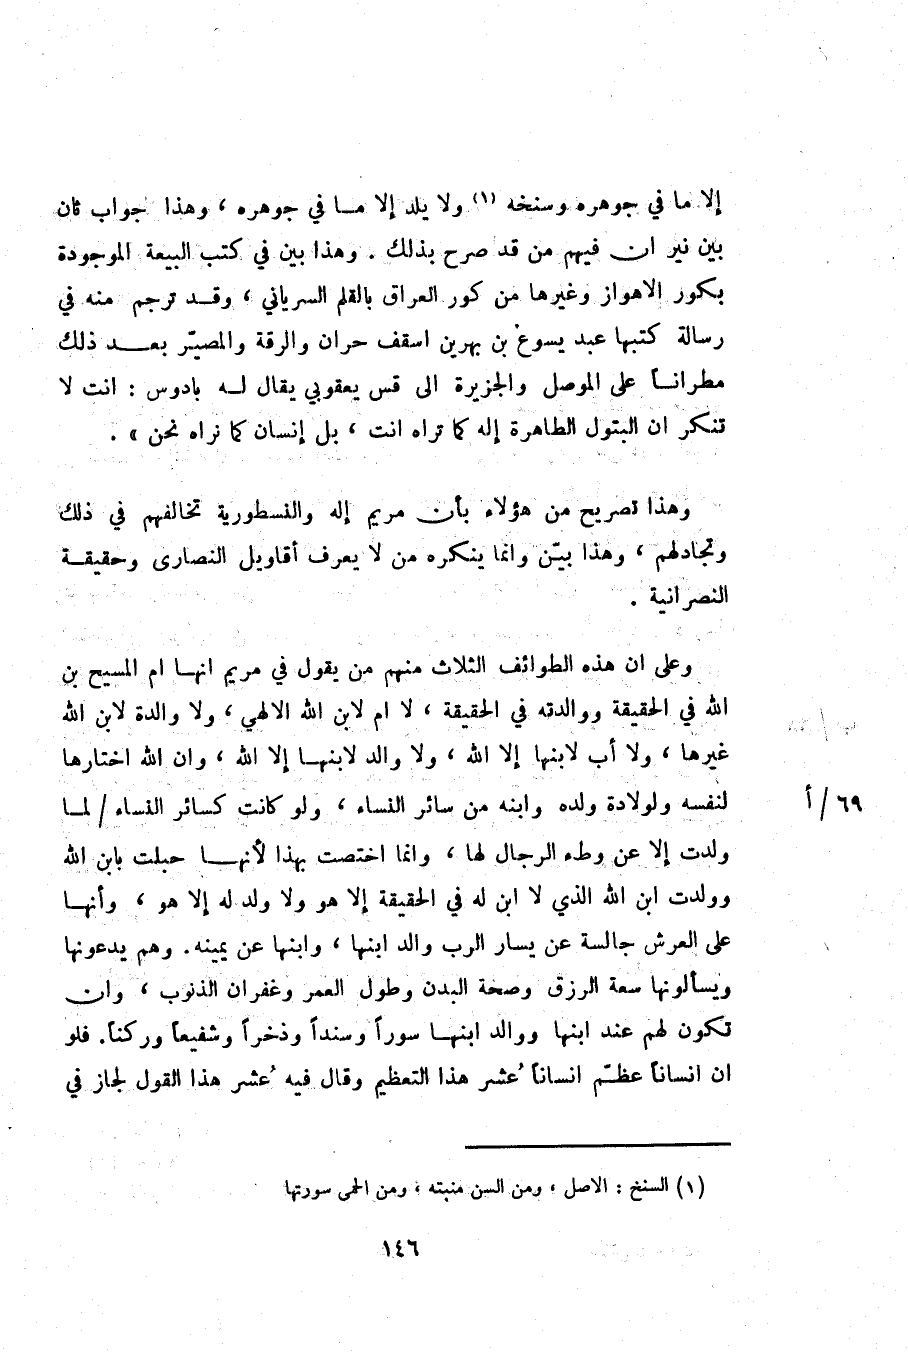 إلا ما في جوهره وسنخه (١) ولا يلد إلا مــا في جوهره ، وهذا جواب ثان
بين نير ان فيهم من قد صرح بذلك . وهذا بين في كتب البيعة الموجودة
بكور الاهواز وغيرها من كور العراق بالقلم السرياني ، وقـد ترجم منه في
رسالة كتبها عبد يسوع بن بهرين اسقف حران والرقة والمصيّر بعـــد ذلك
مطرانـاً على الموصل والجزيرة الى قس يعقوبي يقال لـه بادوس : انت لا
تنكر ان البتول الطاهرة إله كما تراه انت ، بل إنسان كما نراه نحن » .
وهذا تصريح من هؤلاء بأن مريم إله والنسطورية تخالفهم في ذلك
وتجادلهم ، وهذا بيّن وانما ينكره من لا يعرف أقاويل النصارى وحقيقـة
النصرانية .
وعلى ان هذه الطوائف الثلاث منهم من يقول في مريم انهـا ام المسيح بن
الله في الحقيقة ووالدته في الحقيقة ، لا ام لابن الله الالهي ، ولا والدة لابن الله
غيرها ، ولا أب لابنها إلا الله ، ولا والد لابنهـا إلا الله ، وان الله اختارها
لنفسه ولولادة ولده وابنه من سائر النساء ، ولو كانت كسائر النساء / لمـا
٦٩ / أ
ولدت إلا عن وطء الرجال لها ، وانما اختصت بهذا لأنهـــا حبلت بابن الله
وولدت ابن الله الذي لا ابن له في الحقيقة إلا هو ولا ولد له إلا هو ، وأنهـا
على العرش جالسة عن يسار الرب والد ابنها ، وابنها عن يمينه. وهم يدعونها
ويسألونها سعة الرزق وصحة البدن وطول العمر وغفران الذنوب ، وان
تكون لهم عند ابنها ووالد ابنهـا سوراً وسنداً وذخراً وشفيعاً وركناً. فلو
ان انساناً عظّم انساناً عُشر هذا التعظيم وقال فيه عُشر هذا القول لجاز في
(١) السنخ : الاصل ، ومن السن منبته ، ومن الحمى سورتها
١٤٦